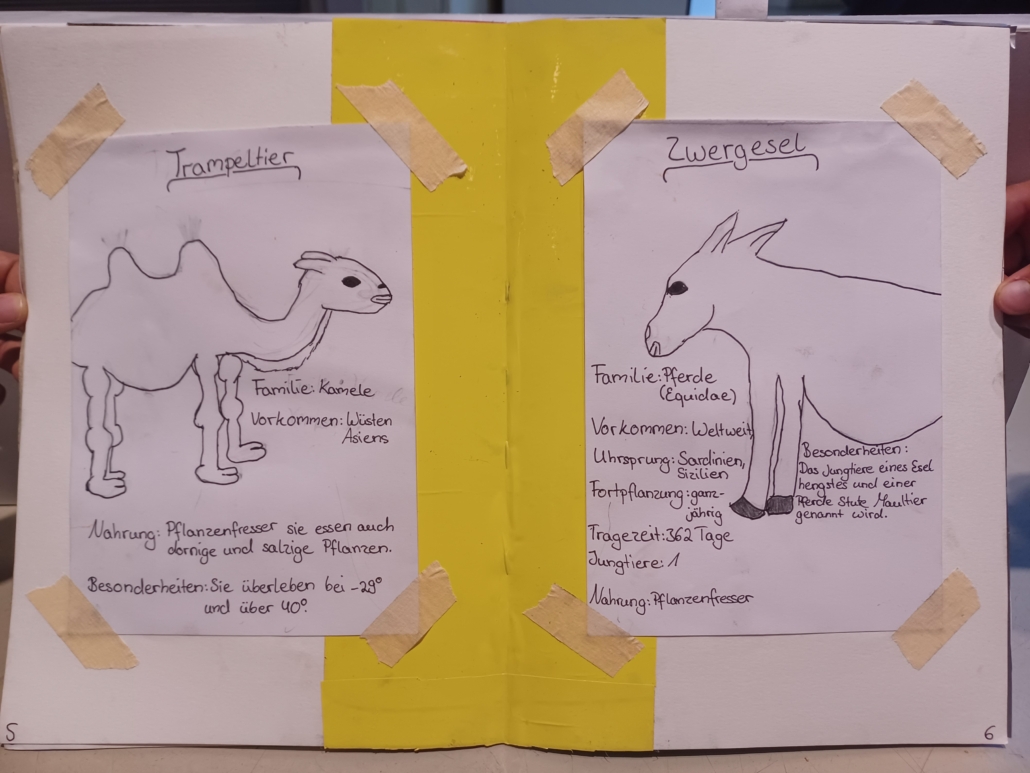 Trampeltier
Familie: Kamele
Vorkommen: Wüsten
Asiens
Nahrung: Pflanzenfresser sie essen auch
dornige und salzige Pflanzen.
Besonderheiten: Sie überleben bei -29°
und über 40°.
5
Zwergesel
Familie: Pferde
(Equidae)
Vorkommen: Weltweit
Uhrsprung: Sardinien,
Sizilien
Fortpflanzung: ganz-
jährig
Tragezeit: 362 Tage
Jungtiere: 1
Nahrung: Pflanzenfresser
Besonderheiten:
Das Jungtiere eines Esel
hengstes und einer
Pferde Stute Maultier
genannt wird.
6